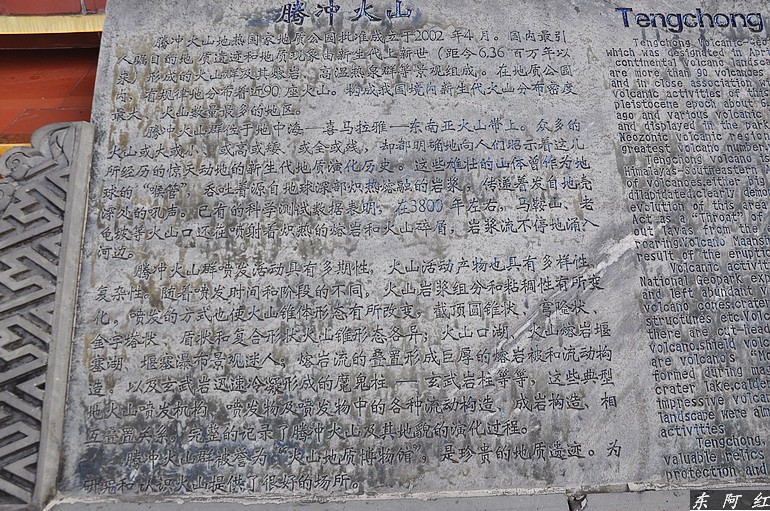 腾冲火山
腾冲火山地热国家地质公园批准成立于2002年4月。国内最引
人瞩目的地质遗迹和地质现象由新生代上新世（距今6.36百万年以
来）形成的火山群及其熔岩、高温热泉群等景观组成。在地质公园
有规律地分布着近90座火山。构成我国境内新生代火山分布密度
最大、火山数量最多的地区。
腾冲火山群位于地中海—喜马拉雅—东南亚火山带上。众多的
火山或大或小、或高或矮、或全或残，却都明确地向人们昭示着这儿
所经历的惊天动地的新生代地质演化历史。这些雄壮的山体曾作为地
球的“喉管”，吞吐着源自地球深部炽热熔融的岩浆，传递着发自地壳
深处的吼声。已有的科学测试数据表明，在3800年左右，马鞍山、老
龟坡等火山口还在喷射着炽热的熔岩和火山碎屑，岩浆流不停地涌入
河边。
腾冲火山群喷发活动具有多期性，火山活动产物也具有多样性、
复杂性。随着喷发时间和阶段的不同，火山岩浆组分和粘稠性有所变
化，喷发的方式也使火山锥体形态有所改变。截顶圆锥状、穹隆状、
金字塔状、盾状和复合形状火山锥形态各异，火山口湖、火山熔岩堰
塞湖、堰塞瀑布景观迷人。熔岩流的叠置形成巨厚的熔岩被和流动构
造。以及玄武岩迅速冷凝形成的魔鬼柱——玄武岩柱等等，这些典型
地火山喷发机构、喷发物及喷发物中的各种流动构造、成岩构造、相
互叠置关系，完整的记录了腾冲火山及其地貌的演化过程。
腾冲火山群被誉为“火山地质博物馆”，是珍贵的地质遗迹。为
研究和认识火山提供了很好的场所。
Tengchong
Tengchong Volcanic-Geo
which was designated in
continental volcanic landsca
are more than 90 volcanoes
and in close association
volcanic activities of the
pleistocene epoch about 6.
ago and various volcanic
and displayed in the park
Neocene volcanic region
greatest volcano number.
Tengchong volcano is
Himalaya Southeastern
of volcanoes, either
dilapidated, clearly demon
evolution of this area
Act as "Throat" of
out lavas from the
roaring. Volcano Maansh
result of the eruptio
Volcanic activiti
National Geopark exp
and left abundant
volcano conescrater
structures etc. Vol
there are cut head
volcano, shield volc
are volcano's
formed during
crater lake, calder
impressive volcan
landscape were alm
activities.
Tengchong,
valuable relics
protection and
东阿红